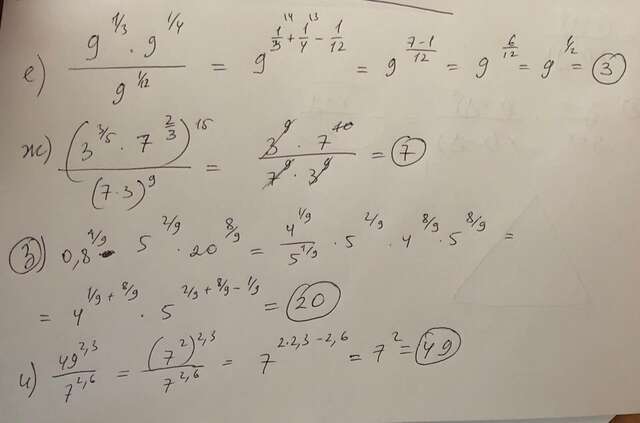 е) (9^(1/3) · 9^(1/4)) / 9^(1/12) = 9^(1/3 + 1/4 − 1/12) = 9^((7−1)/12) = 9^(6/12) = 9^(1/2) = 3
ж) (3^(3/5) · 7^(2/3))^15 / (7·3)^9 = (3^9 · 7^10) / (7^9 · 3^9) = 7
з) 0,8^(1/9) · 5^(2/9) · 20^(8/9) = 4^(1/9) / 5^(1/9) · 5^(2/9) · 4^(8/9) · 5^(8/9) =
= 4^(1/9 + 8/9) · 5^(2/9 + 8/9 − 1/9) = 20
и) 49^(2,3) / 7^(2,6) = (7^2)^(2,3) / 7^(2,6) = 7^(2·2,3 − 2,6) = 7^2 = 49